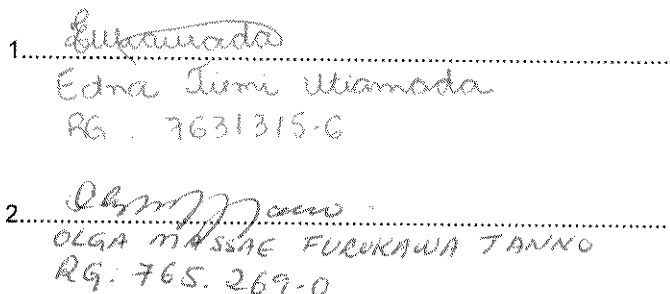 1. EUtiamada
Edna Tiemi Utiamada
RG. 7631315-6
2.
OLGA MASSAE FURUKAWA TANNO
RG: 765.269-0